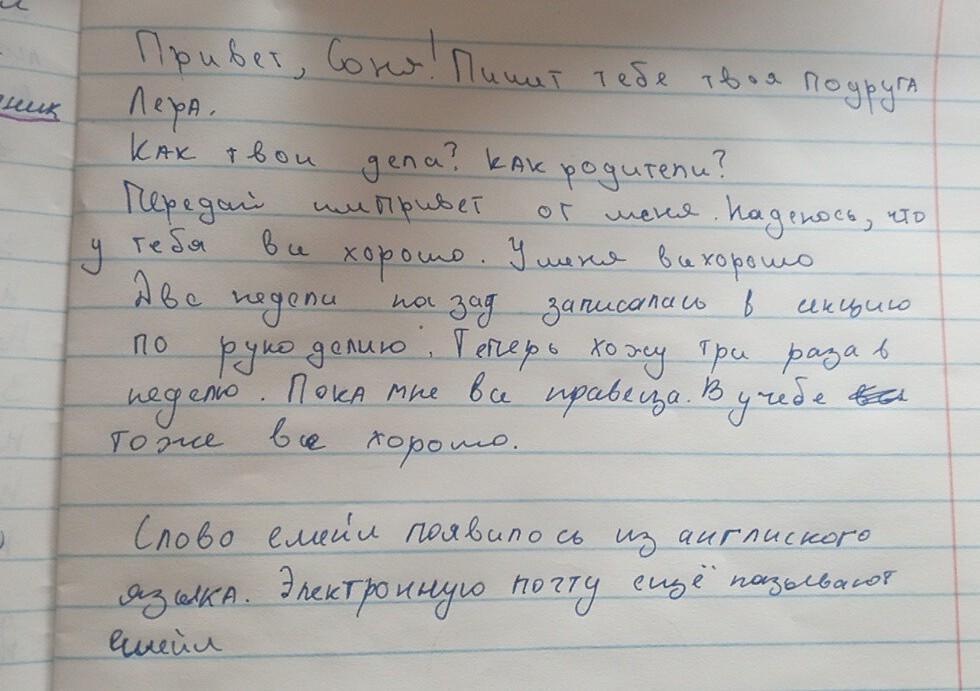 ник
Привет, Соня! Пишит тебе твоя подруга
Лера.
Как твои дела? Как родители?
Передай им привет от меня. Надеюсь, что
у тебя вы хорошо. У меня вы хорошо
Две недели назад записалась в секцию
по рукоделию. Теперь хожу три раза в
неделю. Пока мне все нравеца. В учебе
тоже все хорошо.
Слово емейл появилось из англиского
языка. Электронную почту ещё называют
емейл